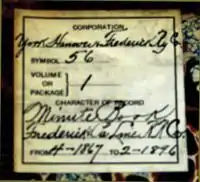 CORPORATION
York Hanover & Frederick Ry Co.
SYMBOL 56
VOLUME
OR 1
PACKAGE
CHARACTER OF RECORD
Minute Book
Frederick & Line R.R. Co.
FROM 4-1867 TO 2-1896